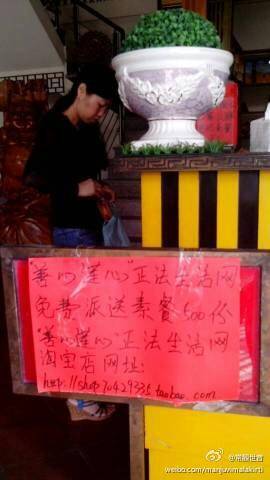 "善心莲心"正法生活网
免费派送素餐500份
"善心莲心"正法生活网
淘宝店网址:
http://shop70429335.taobao.com
@常顯世尊
weibo.com/manjuvimalakirti